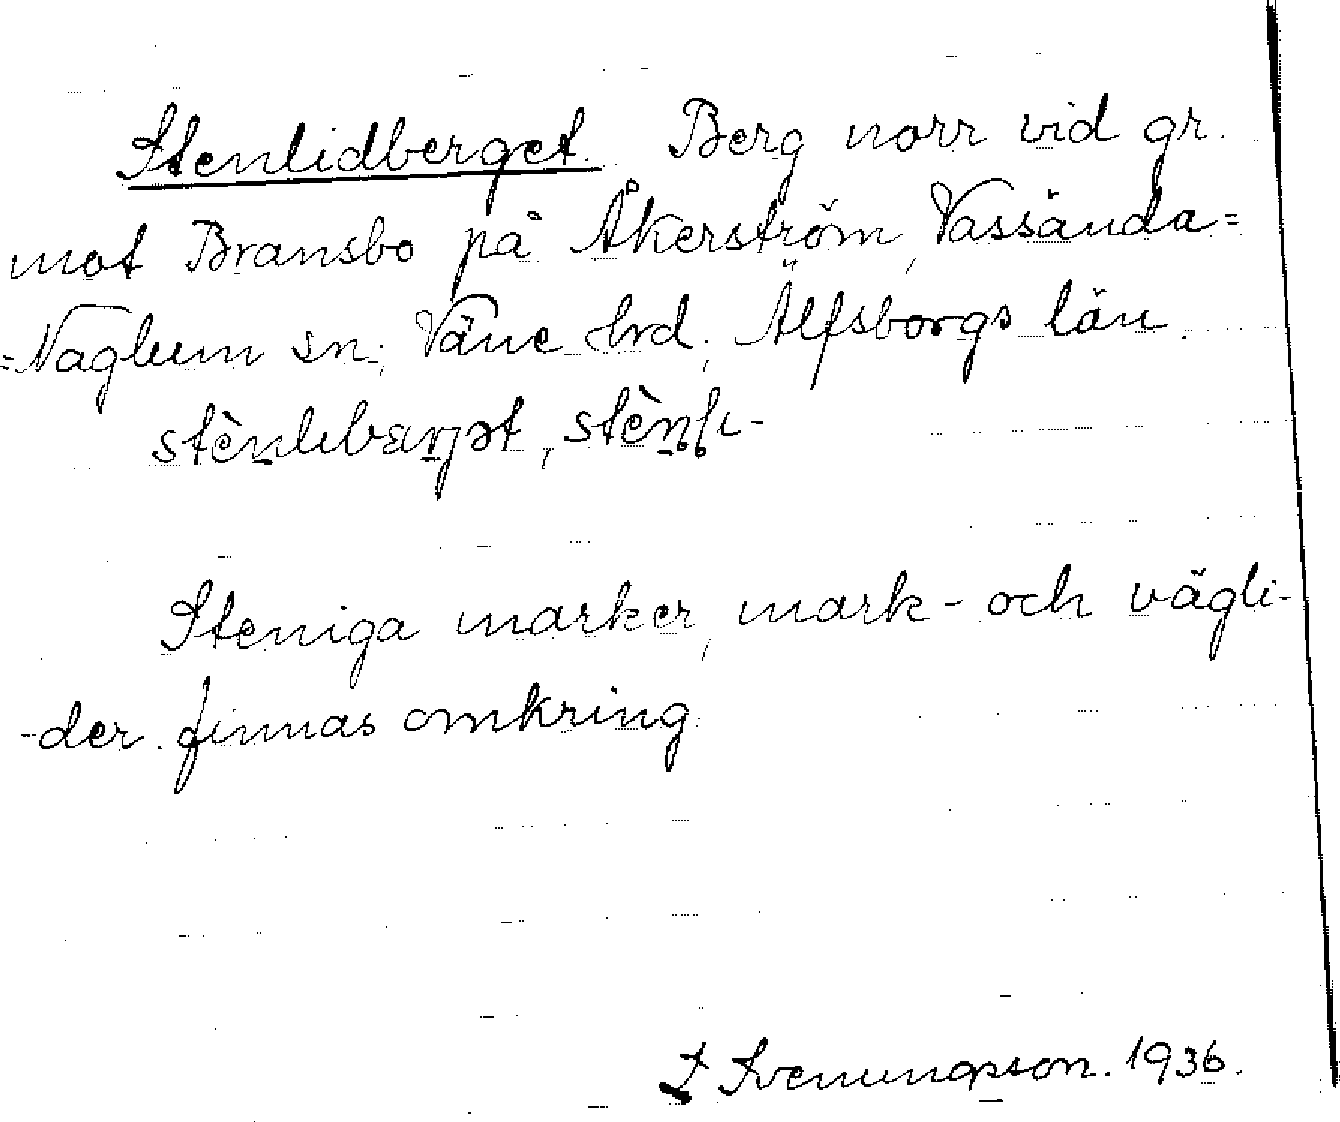 Stenlidberget. Berg norr vid gr.
mot Bransbo på Åkerström, Vassända=
=Naglum sn; Väne hrd; Älfsborgs län.
stènlıbærjət, stènlı-
Steniga marker, mark- och vägli-
-der finnas omkring.
Svenungsson. 1936.